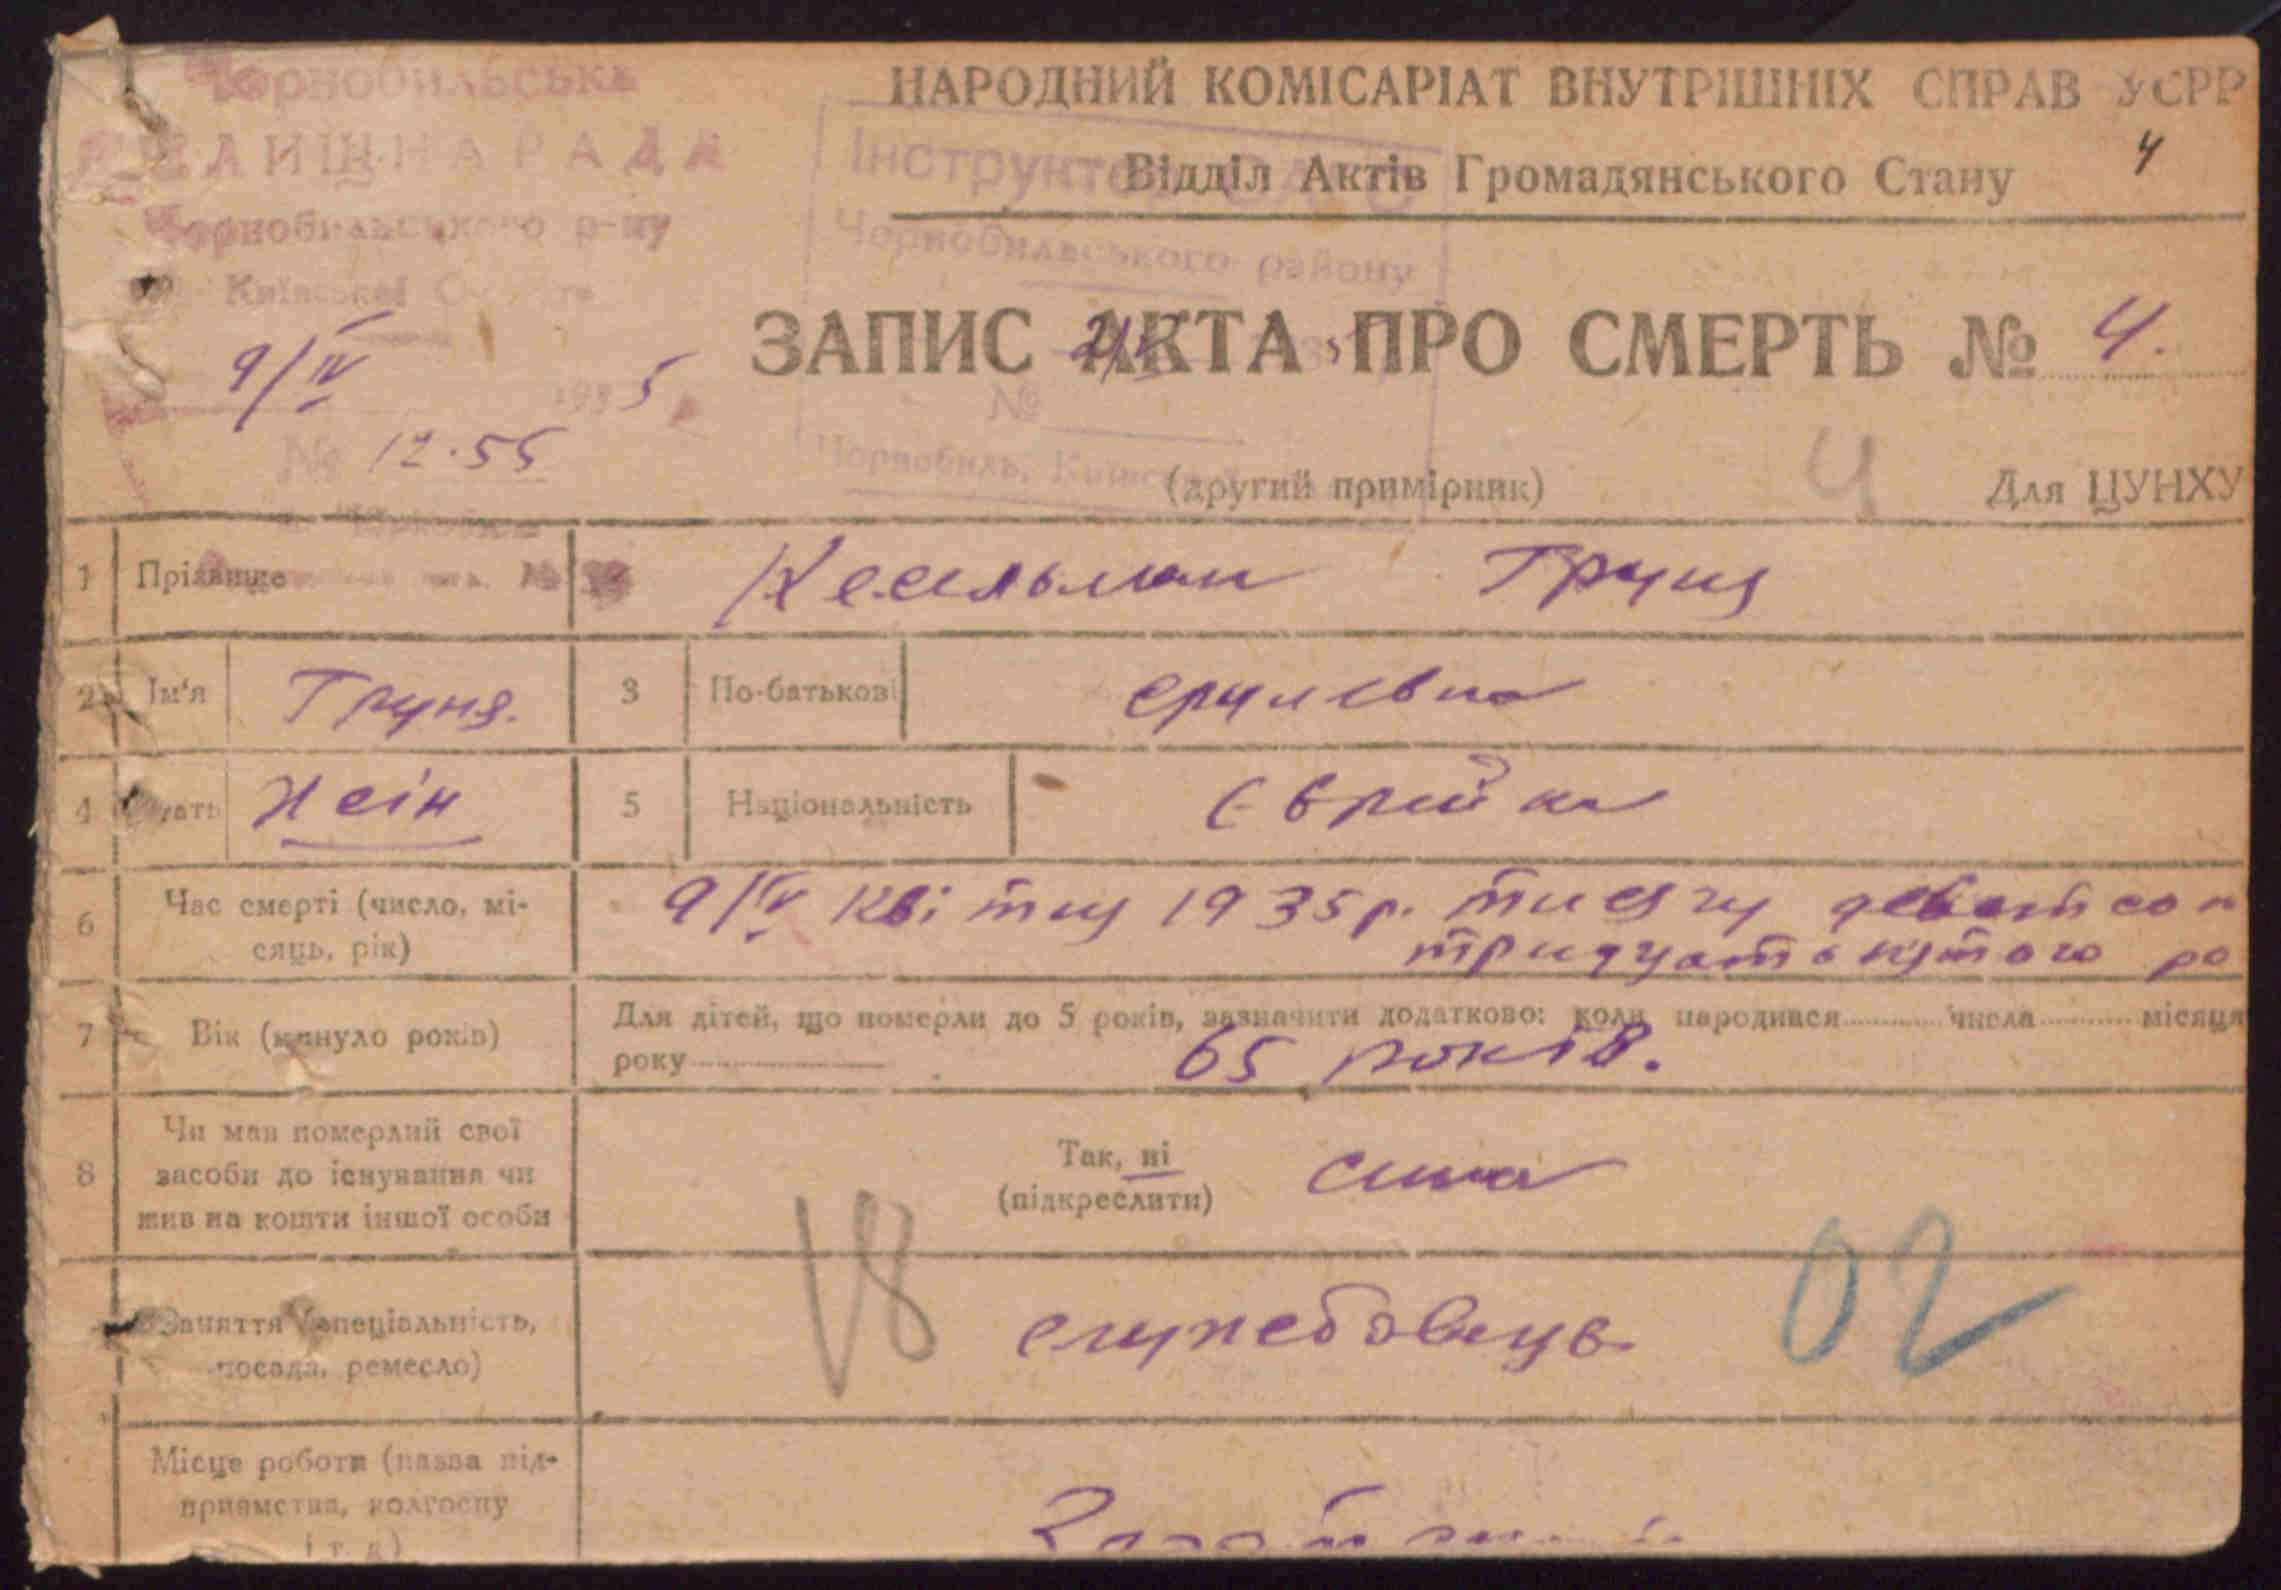 Чорнобильська
СЕЛИЩНА РАДА
Чорнобильського р-ну
Київської
9/IV 1935
№ 12.55
НАРОДНИЙ КОМІСАРІАТ ВНУТРІШНІХ СПРАВ УСРР
4
Відділ Актів Громадянського Стану
Інструктор ЗАГС
Чорнобильського району
ЗАПИС АКТА ПРО СМЕРТЬ № 4.
№
Чорнобиль, Київської
4
(другий примірник) Для ЦУНХУ
1 Прізвище Кесельман Груня
2 Ім'я Груня. 3 По-батькові
4 Стать Жін 5 Національність Єврейка
6 Час смерті (число, мі-
сяць, рік)
9/IV Квітня 1935 р. тисячу девятсот
тридцять пятого ро
7 Вік (минуло років) Для дітей, що померли до 5 років, зазначити додатково: коли народився числа місяця
року 65 років.
8 Чи мав померлий свої
засоби до існування чи
жив на кошти іншої особи
Так, ні
(підкреслити)
сина
Заняття (спеціальність,
посада, ремесло)
18 службовець 02
Місце роботи (назва під-
приємства, колгоспу
і т. д.)